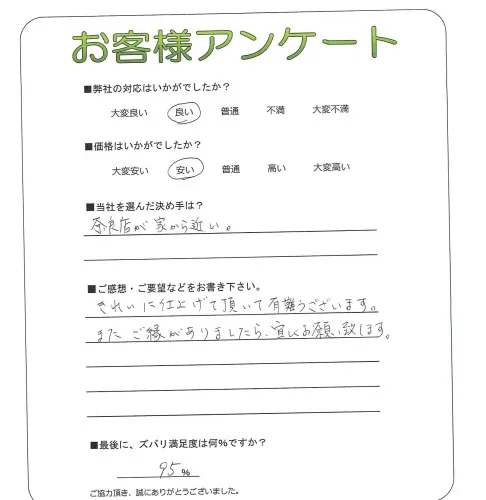 お客様アンケート
■弊社の対応はいかがでしたか？
大変良い 良い 普通 不満 大変不満
■価格はいかがでしたか？
大変安い 安い 普通 高い 大変高い
■当社を選んだ決め手は？
奈良店が家から近い。
■ご感想・ご要望などをお書き下さい。
きれいに仕上げて頂いて有難うございます。
またご縁がありましたら、宜しくお願い致します。
■最後に、ズバリ満足度は何%ですか？
95%
ご協力頂き、誠にありがとうございました。